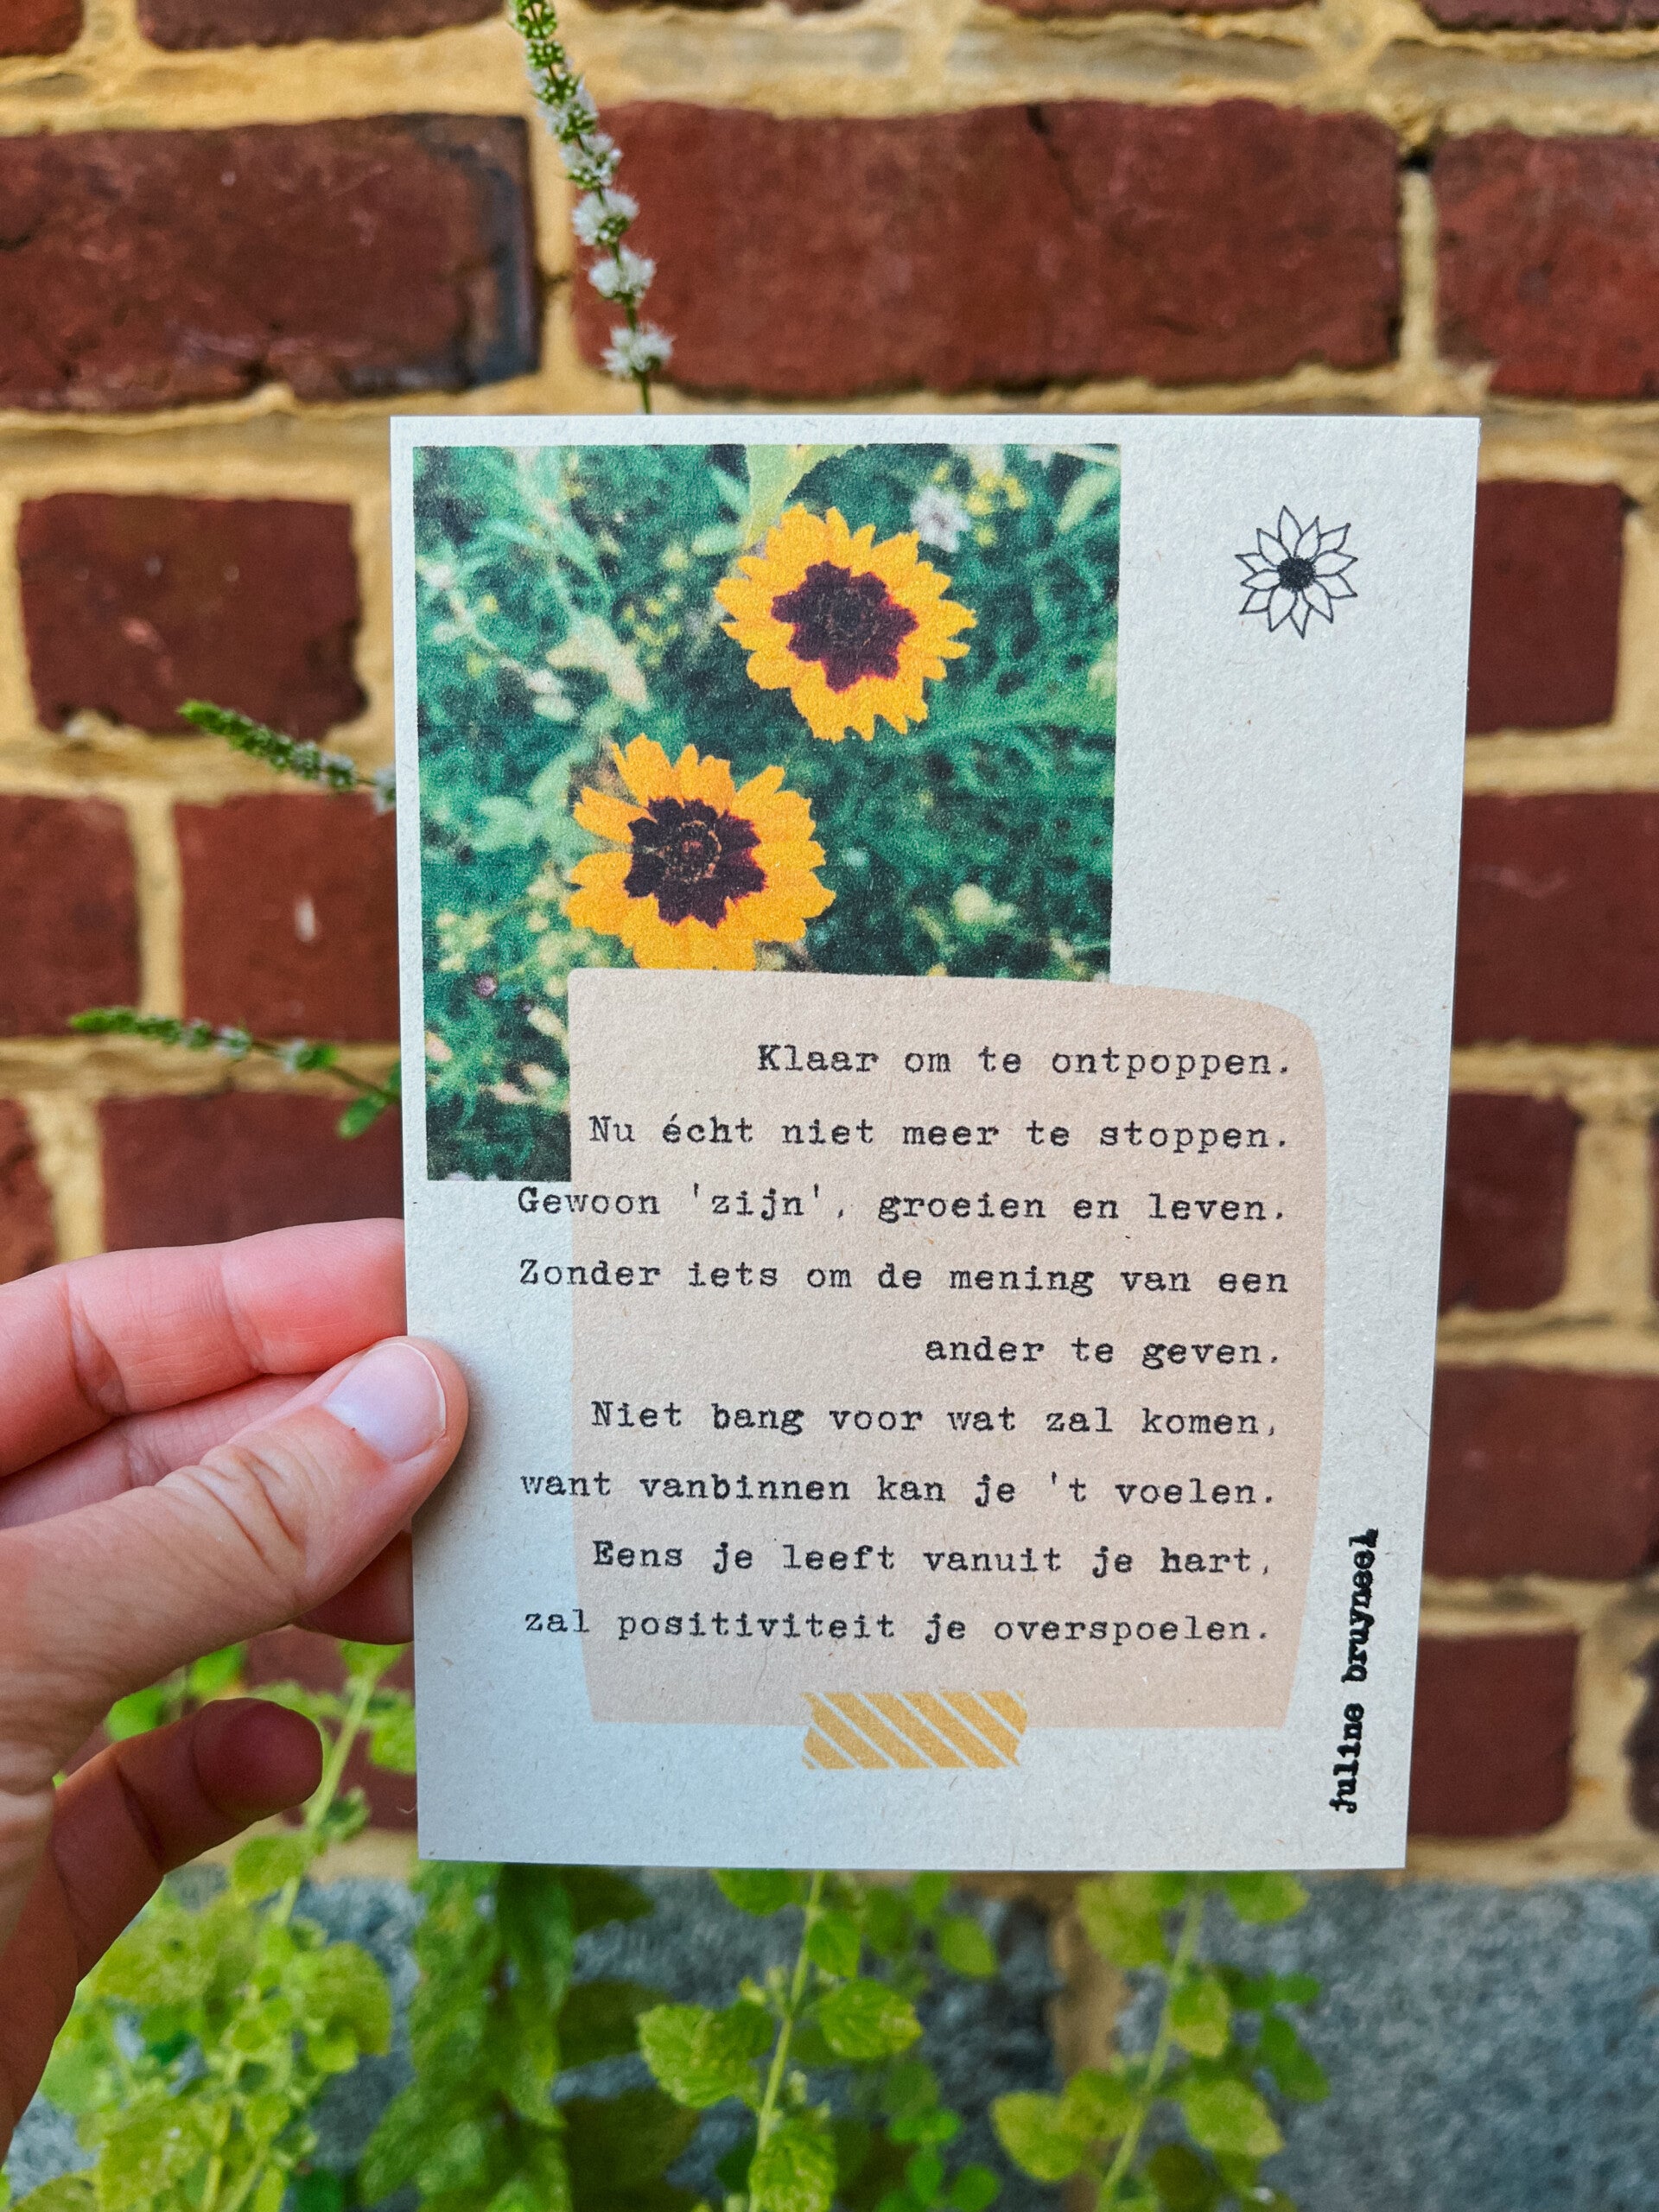 Klaar om te ontpoppen.
Nu écht niet meer te stoppen.
Gewoon 'zijn', groeien en leven.
Zonder iets om de mening van een
ander te geven.
Niet bang voor wat zal komen,
want vanbinnen kan je 't voelen.
Eens je leeft vanuit je hart,
zal positiviteit je overspoelen.
juline bruyneel